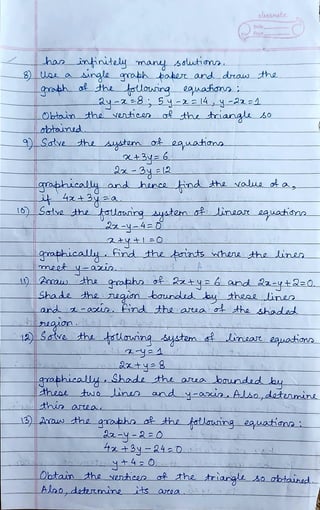 classmate
Date
Page
has infinitely many solutions.
8) Use a single graph paper and draw the
graph of the following equations :
2y-x=8 ; 5y-x=14 , y-2x=1
Obtain the vertices of the triangle so
obtained.
9) Solve the system of equations
x+3y=6
2x-3y=12
graphically and hence find the value of a,
if 4x+3y=a.
10) Solve the following system of linear equations
2x-y-4=0
x+y+1=0
graphically. Find the points where the lines
meet y-axis.
11) Draw the graphs of 2x+y=6 and 2x-y+2=0.
Shade the region bounded by these lines
and x-axis. Find the area of the shaded
region.
12) Solve the following system of linear equations
x-y=1
2x+y=8
graphically. Shade the area bounded by
these two lines and y-axis. Also, determine
this area.
13) Draw the graphs of the following equations :
2x-y-2=0
4x+3y-24=0
y+4=0
Obtain the vertices of the triangle so obtained.
Also, determine its area.